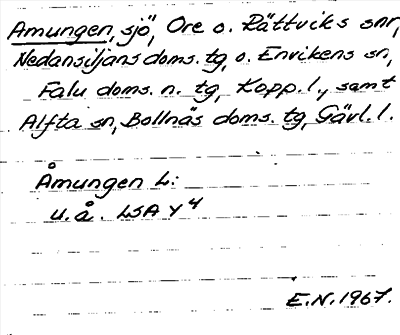 Amungen, sjö, Ore o. Rättviks snr,
Nedansiljans doms. tg, o. Envikens sn,
Falu doms. n. tg, Kopp. l., samt
Alfta sn, Bollnäs doms. tg, Gävl. l.
Åmungen L:
u. å. LSA Y 4
E.N. 1967.